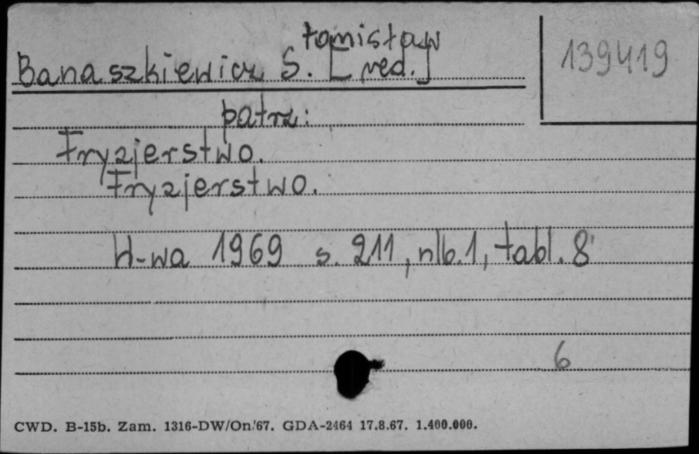 Banaszkiewicz S.tanisław [red.]
139419
patrz:
Fryzjerstwo.
Fryzjerstwo.
W-wa 1969 s. 211, nlb.1, tabl. 8
6
CWD. B-15b. Zam. 1316-DW/On/67. GDA-2464 17.8.67. 1.400.000.